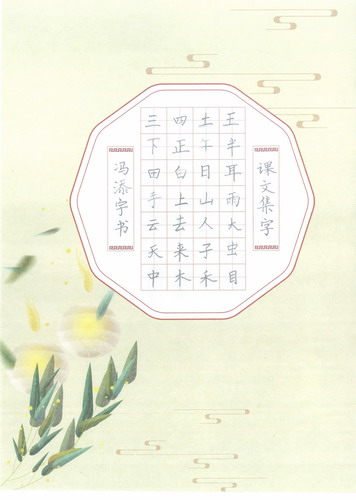 课文集字
王半耳雨大虫目
土午日山人子禾
四正白上去来木
三下田手云天中
冯添宇书